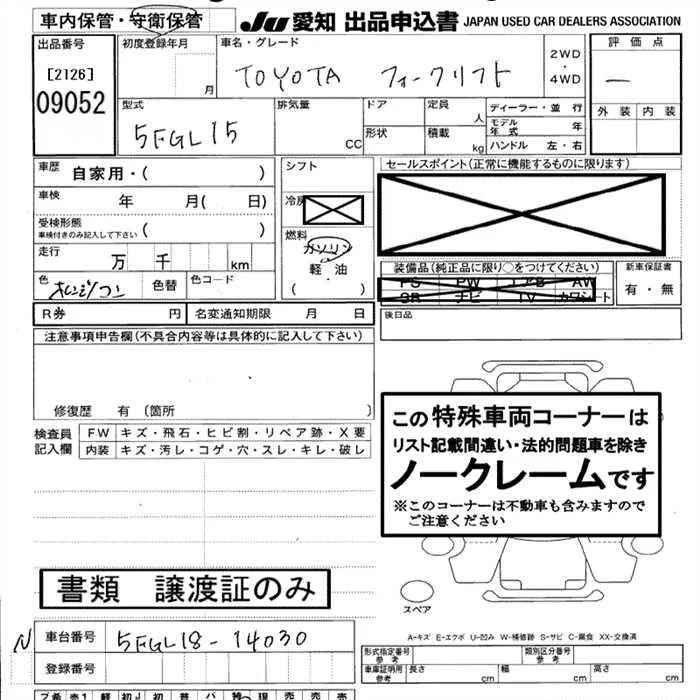 車内保管・守衛保管
JU 愛知 出品申込書 JAPAN USED CAR DEALERS ASSOCIATION
出品番号
[2126]
09052
初度登録年月
月
車名・グレード
TOYOTA フォークリフト
2WD
・
4WD
評価点
—
外装 内装
型式
5FGL15
排気量
CC
ドア
形状
定員
人
積載
kg
ディーラー・並 行
モデル年式 年
ハンドル 左・右
車歴 自家用・( )
車検 年 月( 日)
受検形態
車検付きのみ記入して下さい ( )
走行 万 千 km
色 オレンジ/コン 色替 色コード
シフト
冷房
燃料
ガソリン
軽 油
( )
セールスポイント(正常に機能するものに限ります)
装備品(純正品に限り○をつけてください)
PS PW エアB AW
SR ナビ TV カワシート
新車保証書
有・無
後日品
R券 円 名変通知期限 月 日
注意事項申告欄(不具合内容等は具体的に記入して下さい)
修復歴 有〔箇所 〕
検査員記入欄
FW キズ・飛石・ヒビ割・リペア跡・X要
内装 キズ・汚レ・コゲ・穴・スレ・キレ・破レ
この特殊車両コーナーは
リスト記載間違い・法的問題車を除き
ノークレームです
※このコーナーは不動車も含みますので
ご注意ください
書類 譲渡証のみ
スペア
A-キズ E-エクボ U-凹み W-補修跡 S-サビ C-腐食 XX-交換済
N 車台番号 5FGL18-14030
登録番号
形式指定番号 参考
類別区分番号 参考
車庫証明用 参考 長さ 幅 高さ